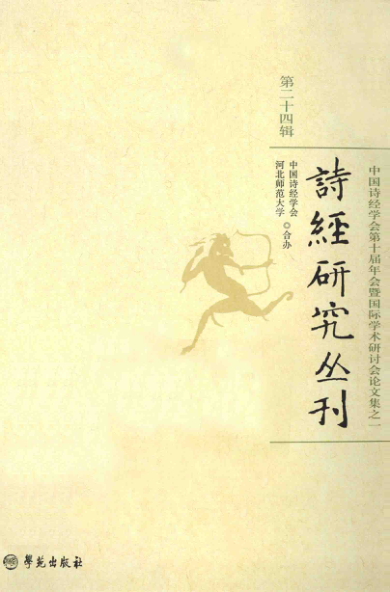 中国诗经学会第十届年会暨国际学术研讨会论文集之一
詩經研究丛刊
第二十四辑
中国诗经学会
河北师范大学
合办
學苑出版社